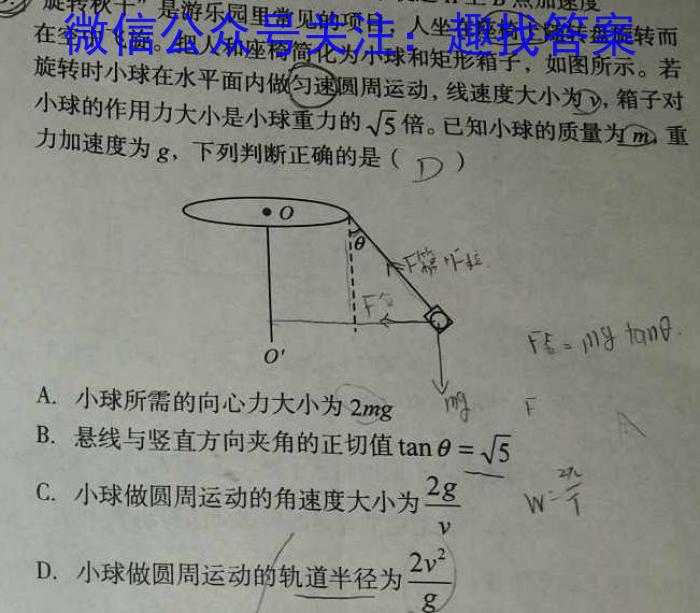 旋转秋千"是游乐园里常见的项目，人坐在座椅上随转盘旋转而
微信公众号关注：趣找答案
在空中飞旋。把人和座椅简化为小球和矩形箱子，如图所示。若
旋转时小球在水平面内做匀速圆周运动，线速度大小为v，箱子对
小球的作用力大小是小球重力的√5倍。已知小球的质量为m，重
力加速度为g，下列判断正确的是（ D ）
O
θ
F合
O'
mg
F
A. 小球所需的向心力大小为2mg
B. 悬线与竖直方向夹角的正切值tan θ = √5
C. 小球做圆周运动的角速度大小为2g/v
W=2π/T
D. 小球做圆周运动的轨道半径为2v²/g